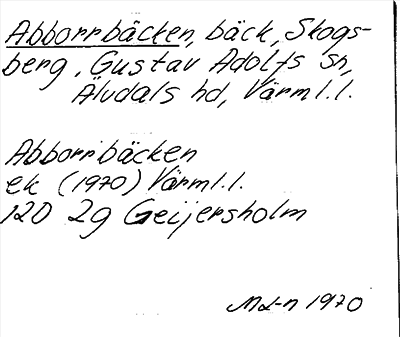 Abborrbäcken, bäck, Skogs-
berg, Gustav Adolfs sn,
Älvdals hd, Värml.l.
Abborrbäcken
ek (1970) Värml.l.
120 2g Geijersholm
1970